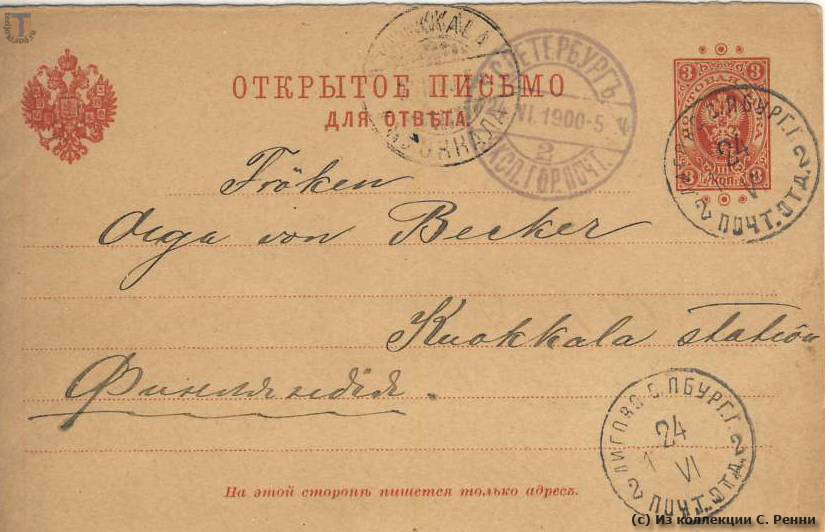 ОТКРЫТОЕ ПИСЬМО
ДЛЯ ОТВѢТА
3 3
KUOKKALA
КУОККАЛА
С.ПЕТЕРБУРГЪ
24 VI.1900-5
2
ЭКСП. ГОР. ПОЧТ.
С.ПБУРГ.Г.
24
VI
2 ПОЧТ.ОТД. 2
Fröken
Olga von Becker
Kuokkala station
Финляндія.
ЛИГОВО С.ПБУРГ.Г.
24
VI
2 ПОЧТ.ОТД. 2
На этой сторонѣ пишется только адресъ.
(c) Из коллекции С. Ренни